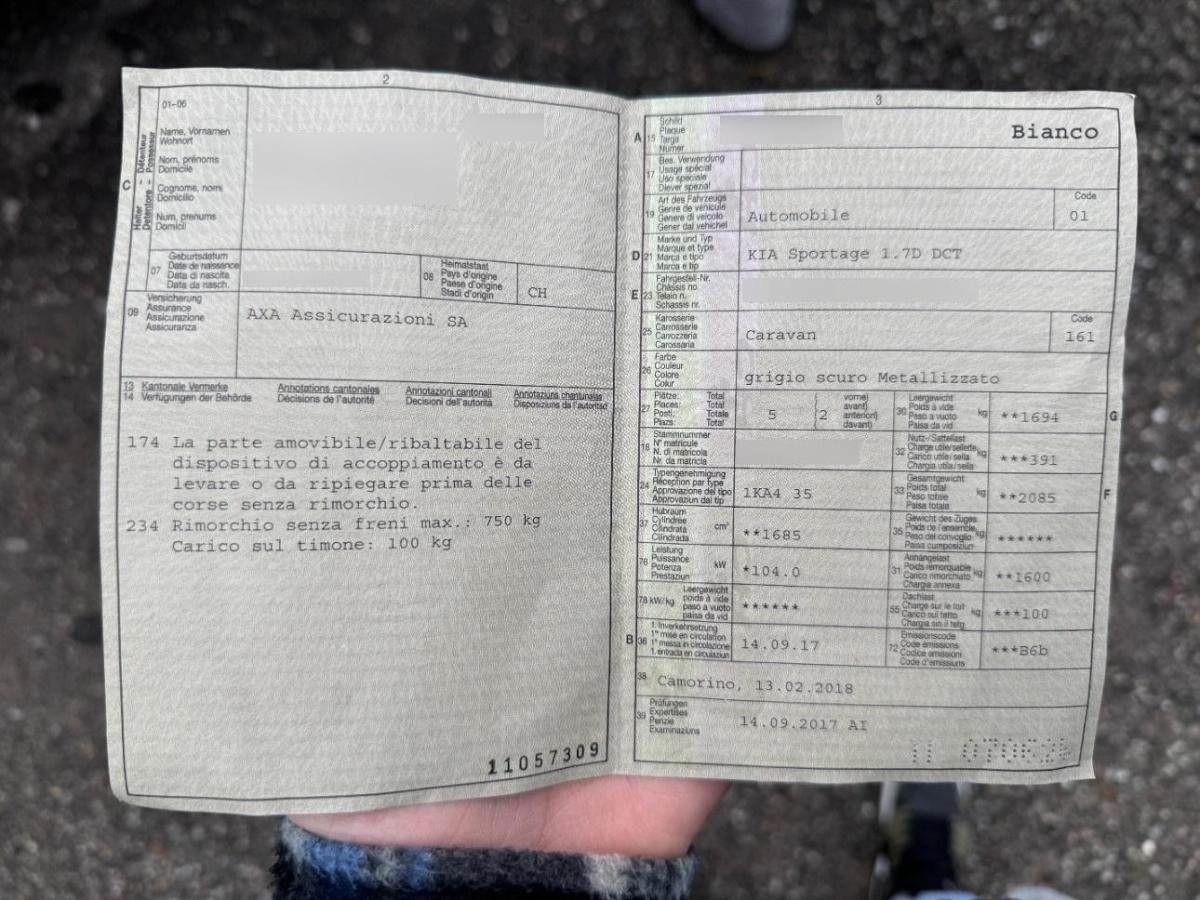 2
01-06
C
Halter - Détenteur
Detentore - Possessur
Name, Vornamen
Wohnort
Nom, prénoms
Domicile
Cognome, nomi
Domicilio
Num, prenums
Domicil
07
Geburtsdatum
Date de naissance
Data di nascita
Data da nasch.
08
Heimatstaat
Pays d'origine
Paese d'origine
Stadi d'origin
CH
09
Versicherung
Assurance
Assicurazione
Assicuranza
AXA Assicurazioni SA
13 Kantonale Vermerke Annotations cantonales Annotazioni cantonali Annotaziuns chantunalas
14 Verfügungen der Behörde Décisions de l'autorité Decisioni dell'autorità Disposiziuns da l'autoritad
174 La parte amovibile/ribaltabile del
dispositivo di accoppiamento è da
levare o da ripiegare prima delle
corse senza rimorchio.
234 Rimorchio senza freni max.: 750 kg
Carico sul timone: 100 kg
11057309
3
A 15
Schild
Plaque
Targa
Numer
Bianco
17
Bes. Verwendung
Usage spécial
Uso speciale
Diever spezial
19
Art des Fahrzeugs
Genre de véhicule
Genere di veicolo
Gener dal vehichel
Automobile
Code
01
D 21
Marke und Typ
Marque et type
Marca e tipo
Marca e tip
KIA Sportage 1.7D DCT
E 23
Fahrgestell-Nr.
Châssis no
Telaio n.
Schassis nr.
25
Karosserie
Carrosserie
Carrozzeria
Carossaria
Caravan
Code
161
26
Farbe
Couleur
Colore
Colur
grigio scuro Metallizzato
27
Plätze: Total
Places: Total
Posti: Totale
Plazs: Total
5
(2
vorne)
avant)
anteriori)
davant)
30
Leergewicht
Poids à vide
Peso a vuoto
Paisa da vid
kg
**1694
G
18
Stammnummer
N° matricule
N. di matricola
Nr. da matricla
32
Nutz-/Sattellast
Charge utile/sellette
Carico utile/sella
Chargia utila/sella
kg
***391
24
Typengenehmigung
Réception par type
Approvazione del tipo
Approvaziun dal tip
1KA4 35
33
Gesamtgewicht
Poids total
Peso totale
Paisa totala
kg
**2085
F
37
Hubraum
Cylindrée
Cilindrata
Cilindrada
cm³
**1685
35
Gewicht des Zuges
Poids de l'ensemble
Peso del convoglio
Paisa cumposiziun
kg
******
76
Leistung
Puissance
Potenza
Prestaziun
kW
*104.0
31
Anhängelast
Poids remorquable
Carico rimorchiato
Chargia annexa
kg
**1600
78 kW/kg
Leergewicht
poids à vide
peso a vuoto
paisa da vid
******
55
Dachlast
Charge sur le toit
Carico sul tetto
Chargia sin il tetg
kg
***100
B 36
1. Inverkehrsetzung
1re mise en circulation
1a messa in circolazione
1. entrada en circulaziun
14.09.17
72
Emissionscode
Code émissions
Codice emissioni
Code d'emissiuns
***B6b
38
Camorino, 13.02.2018
39
Prüfungen
Expertises
Perizie
Examinaziuns
14.09.2017 AI